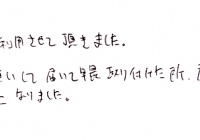 利用させて頂きました。
いして届いて早 取り付けた所、
になりました。